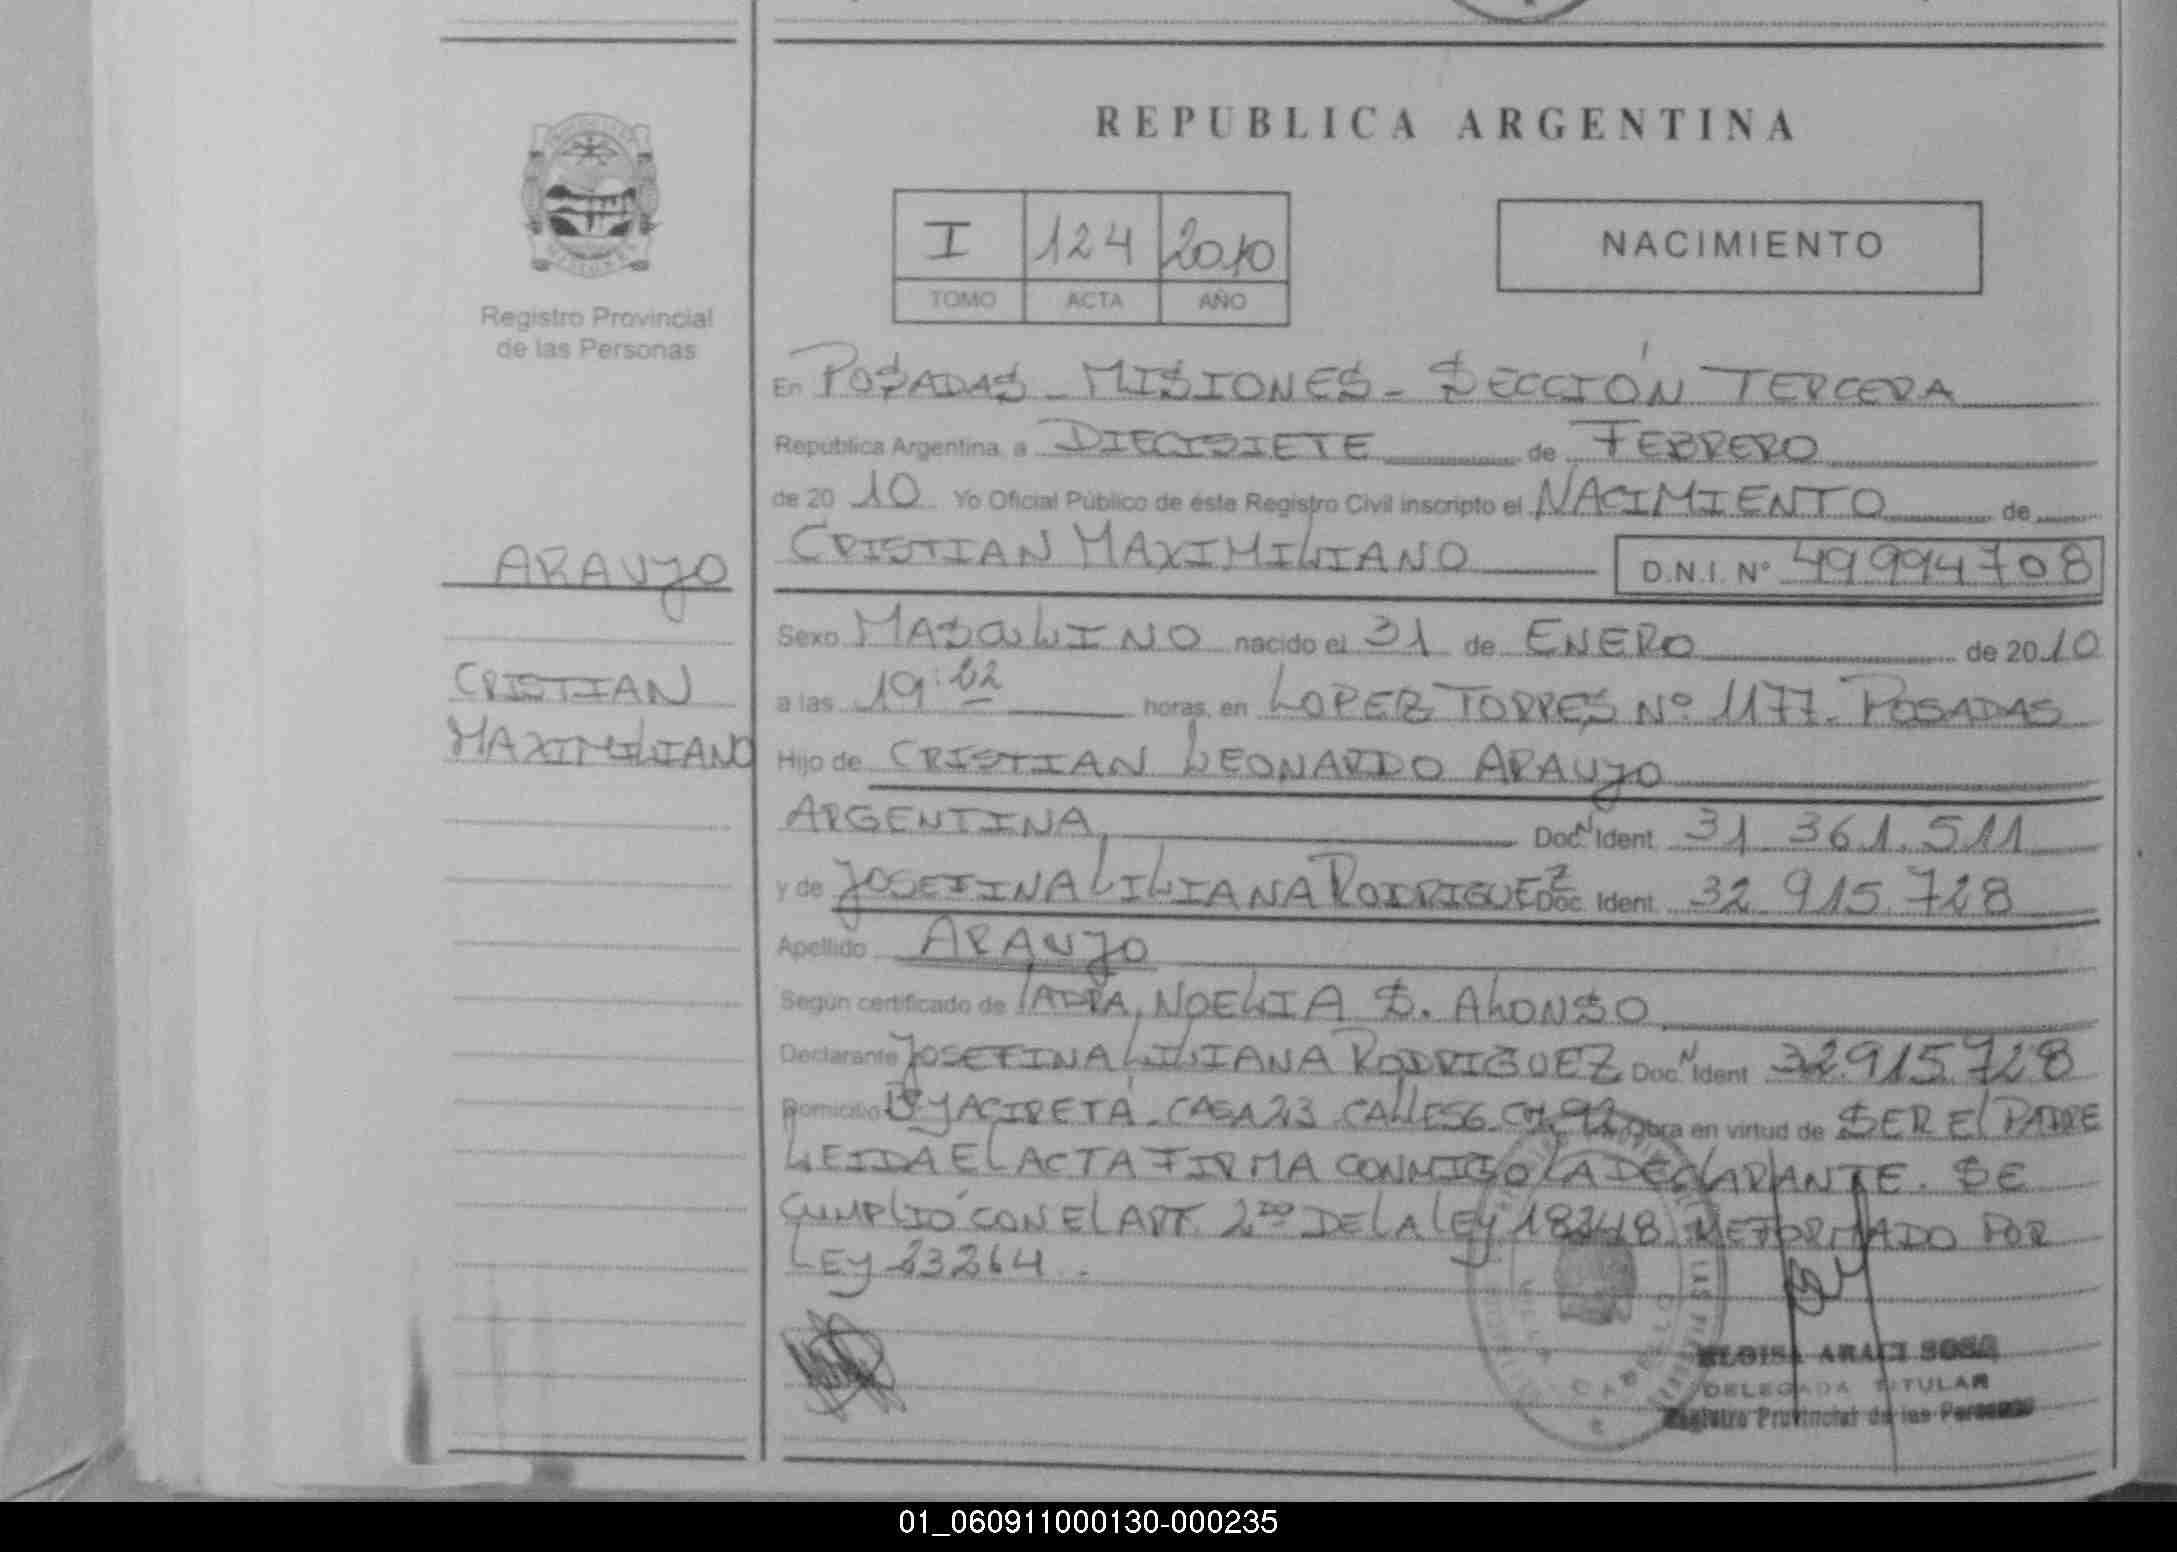 REPUBLICA ARGENTINA
I 124 2010
TOMO ACTA AÑO
NACIMIENTO
Registro Provincial
de las Personas
En POSADAS - MISIONES - SECCIÓN TERCERA
República Argentina, a DIECISIETE de FEBRERO
de 2010 Yo Oficial Público de éste Registro Civil inscripto el NACIMIENTO de
CRISTIAN MAXIMILIANO D.N.I. Nº 49994708
ARAUJO
CRISTIAN
MAXIMILIANO
Sexo MASCULINO nacido el 31 de ENERO de 2010
a las 19: horas, en LOPEZ TORRES Nº 1177. POSADAS
Hijo de CRISTIAN LEONARDO ARAUJO
ARGENTINA, Doc. N Ident. 31.361.511
y de JOSEFINA LILIANA RODRIGUEZ Doc. Ident. 32.915.728
Apellido ARAUJO
Según certificado de NOELIA S. ALONSO
Declarante JOSEFINA LILIANA RODRIGUEZ Doc. N Ident. 32.915.728
Domicilio Bº YACIRETÁ - CASA 23 CALLE 56 obra en virtud de SER EL PADRE
LEIDA EL ACTA FIRMA CONMIGO LA DECLARANTE. SE
CUMPLIÓ CON EL ART. 2DO DE LA LEY 18248 POR
LEY 23264.
ELOISA ARACI SOSA
DELEGADA TITULAR
Registro Provincial de las Personas
01_060911000130-000235